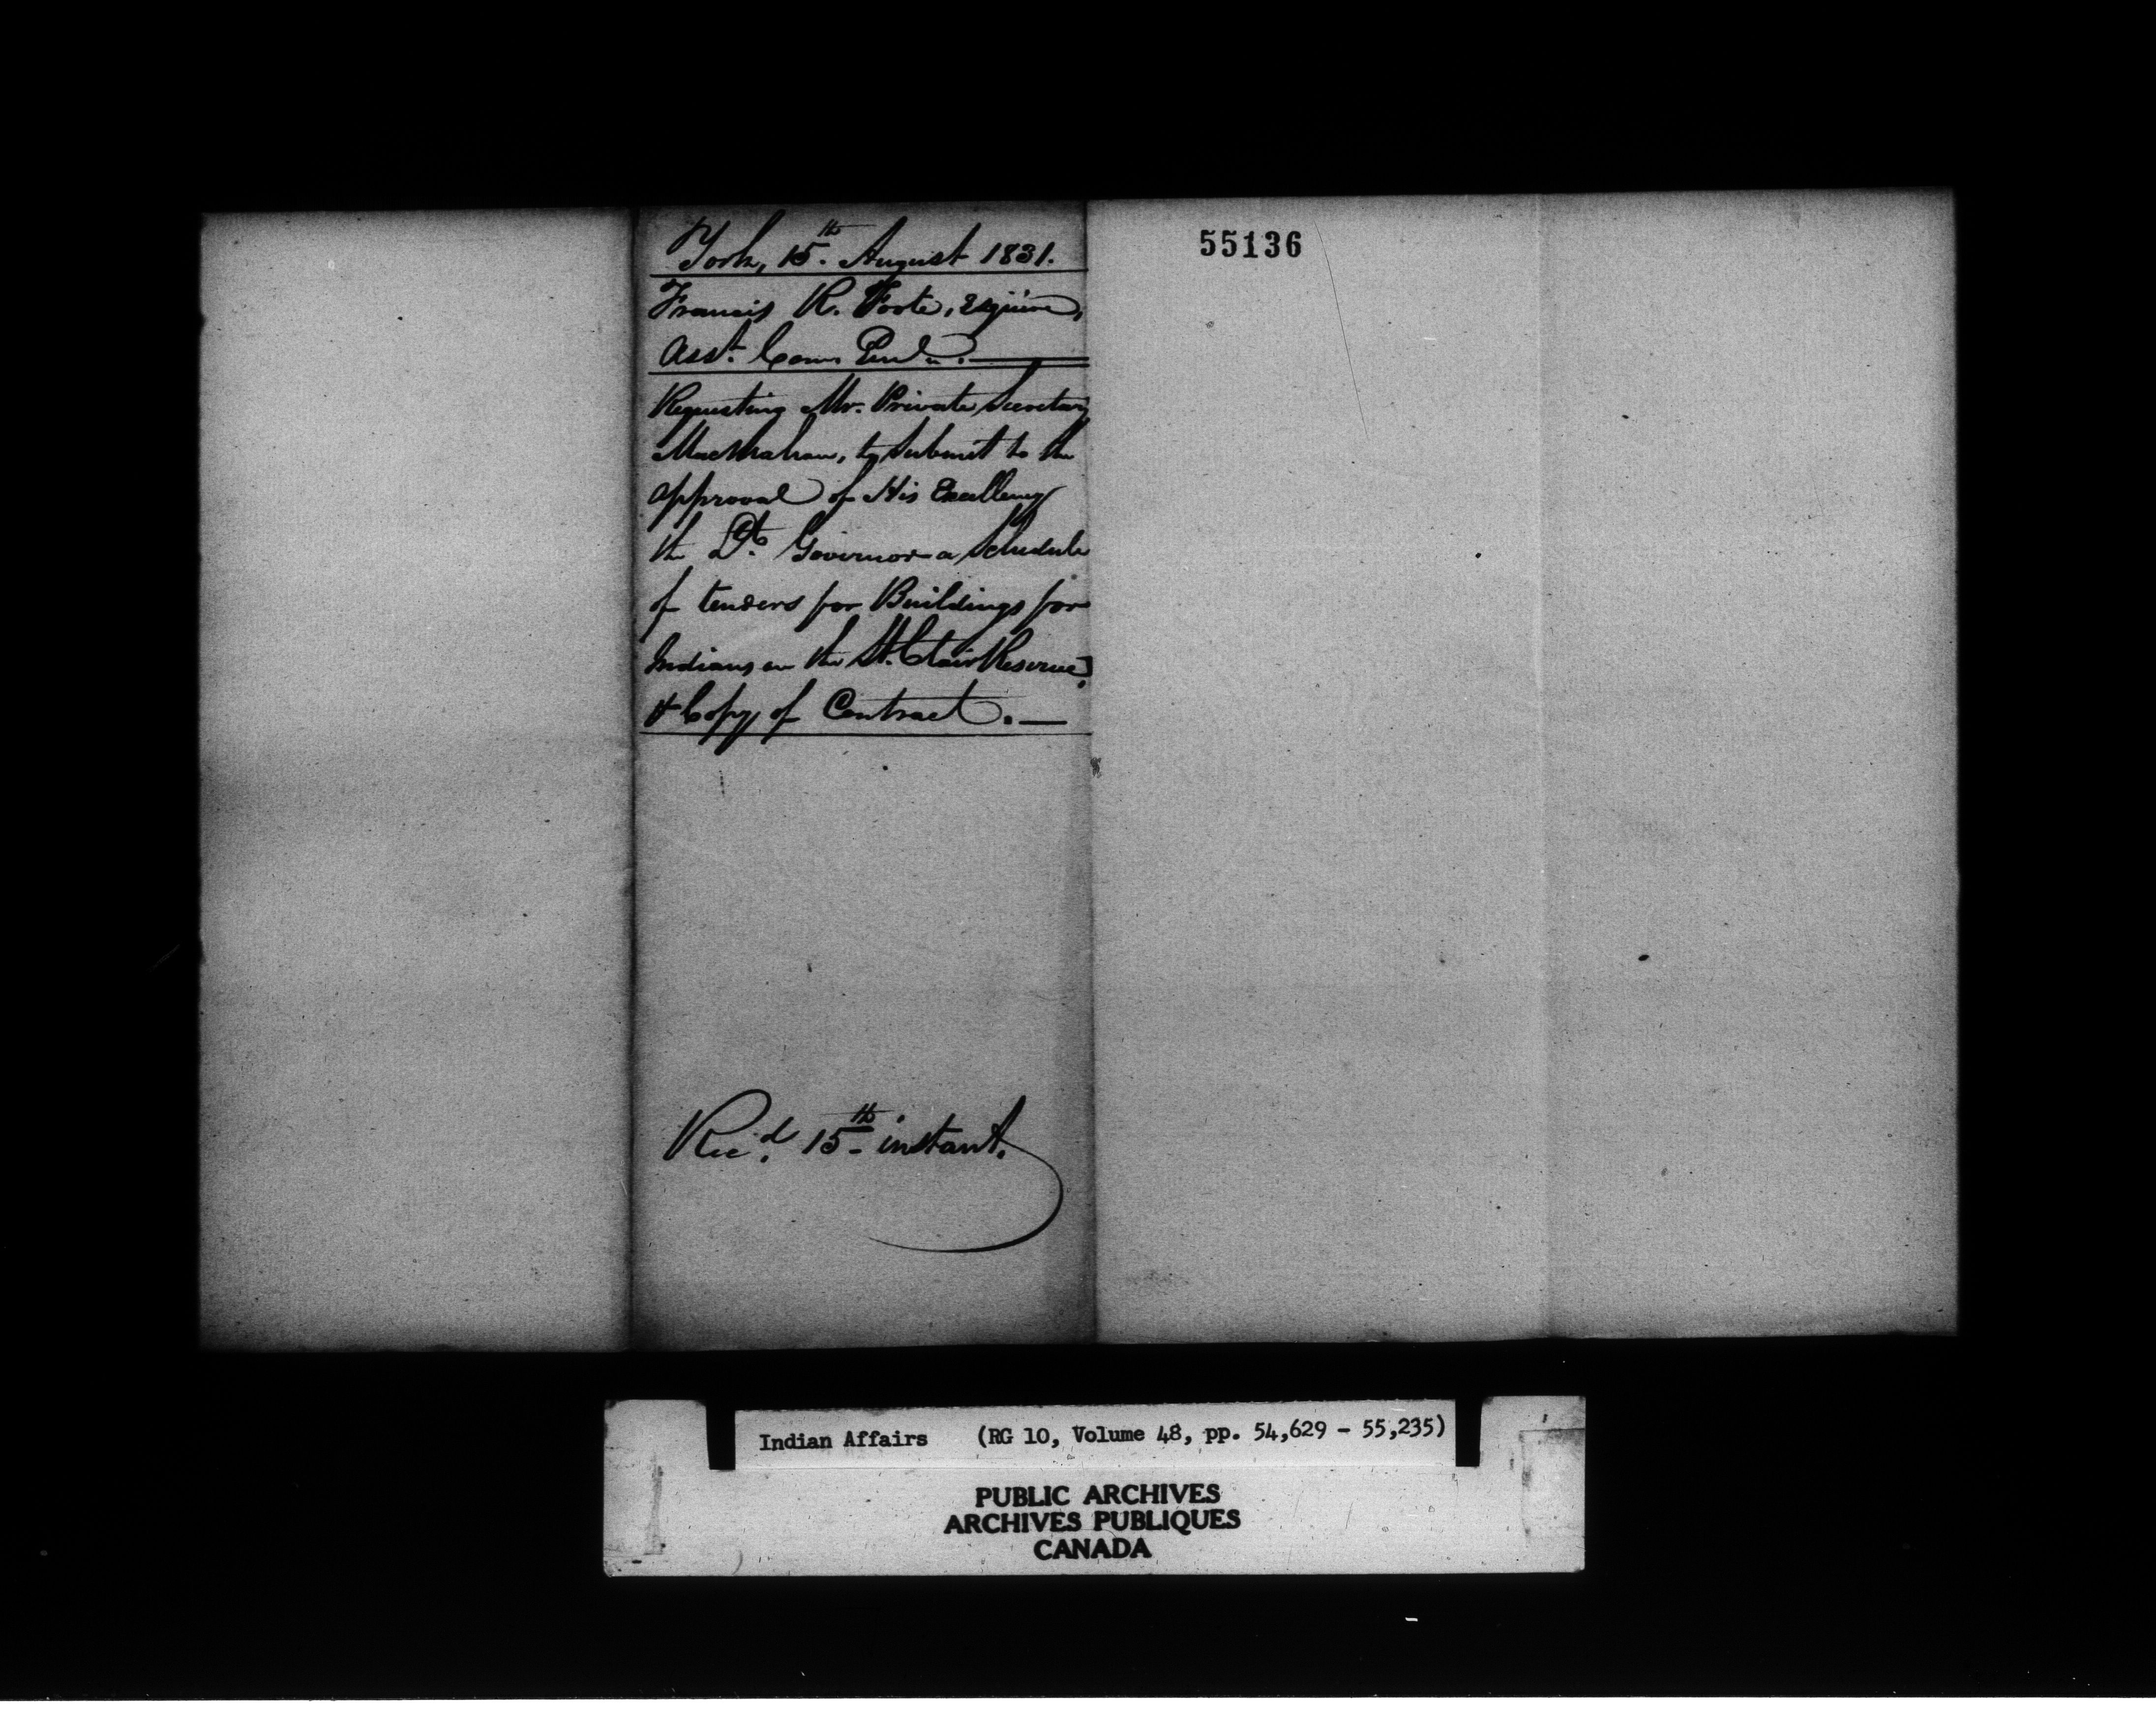 York, 15th. August 1831.
Francis R. Foote, Esquire,
Asst. Com. Genl.
Requesting Mr. Private Secretary
MacMahon, to submit to the
approval of His Excellency
the Lt. Governor a Schedule
of tenders for Buildings for
Indians on the St. Clair Reserve,
& Copy of Contract. —
Rec'd. 15th instant.
55136
Indian Affairs (RG 10, Volume 48, pp. 54,629 - 55,235)
PUBLIC ARCHIVES
ARCHIVES PUBLIQUES
CANADA